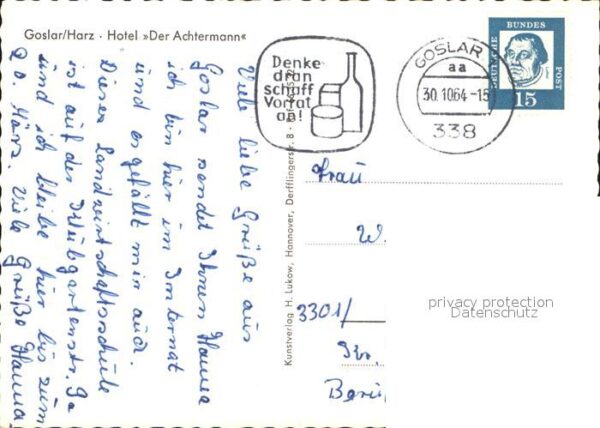 Goslar/Harz · Hotel »Der Achtermann«
Denke
dran
schaff
Vorrat
an!
GOSLAR
aa
30.10.64-15
338
DEUTSCHE
BUNDES
POST
15
Viele liebe Grüße aus
Goslar sendet Ihnen Hanna
ich bin hier im Internat
und es gefällt mir auch.
Diese Landwirtschaftsschule
ist auf der
und ich bleibe hier bis zum
20 März Viele Grüße Hanna
Kunstverlag H. Lukow, Hannover, Derfflingerstr. 8 ·
Frau
W.
3301/
Kr.
privacy protection
Datenschutz